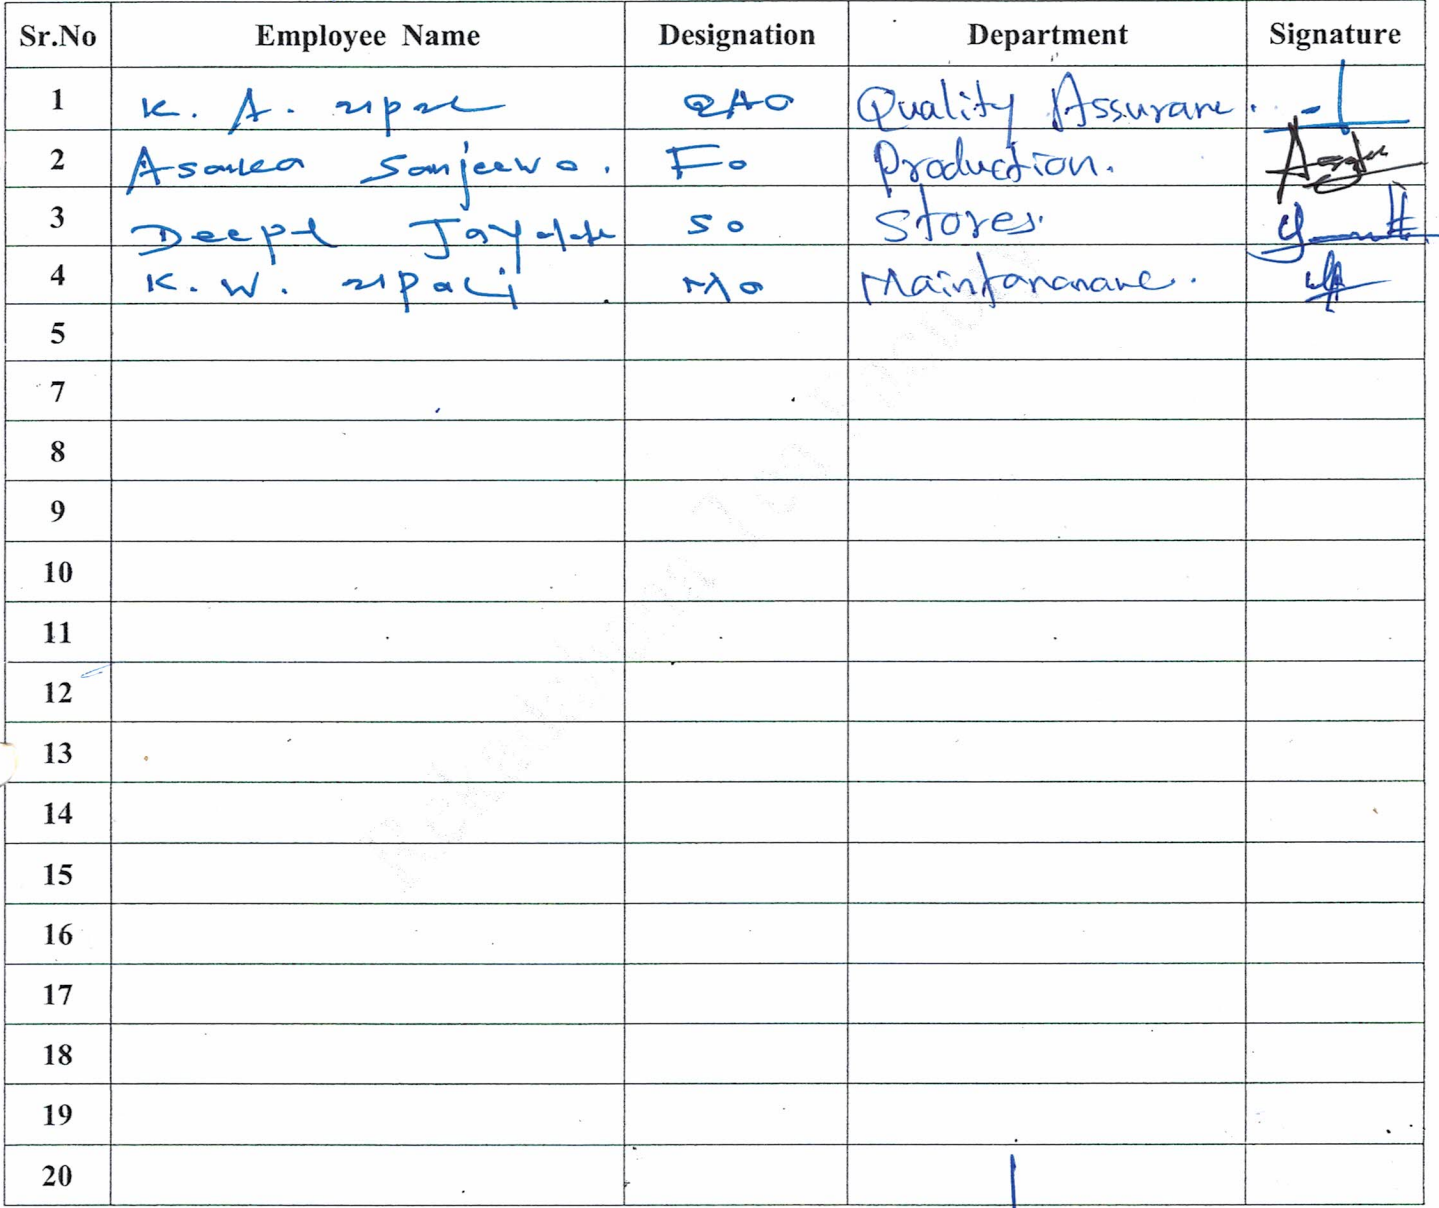 Sr.No Employee Name Designation Department Signature
1 K. A. QAO Quality Assurance.
2 Asanka Sanjeewa. FO Production.
3 Deepl SO Stores.
4 K. W. MO
5
7
8
9
10
11
12
13
14
15
16
17
18
19
20